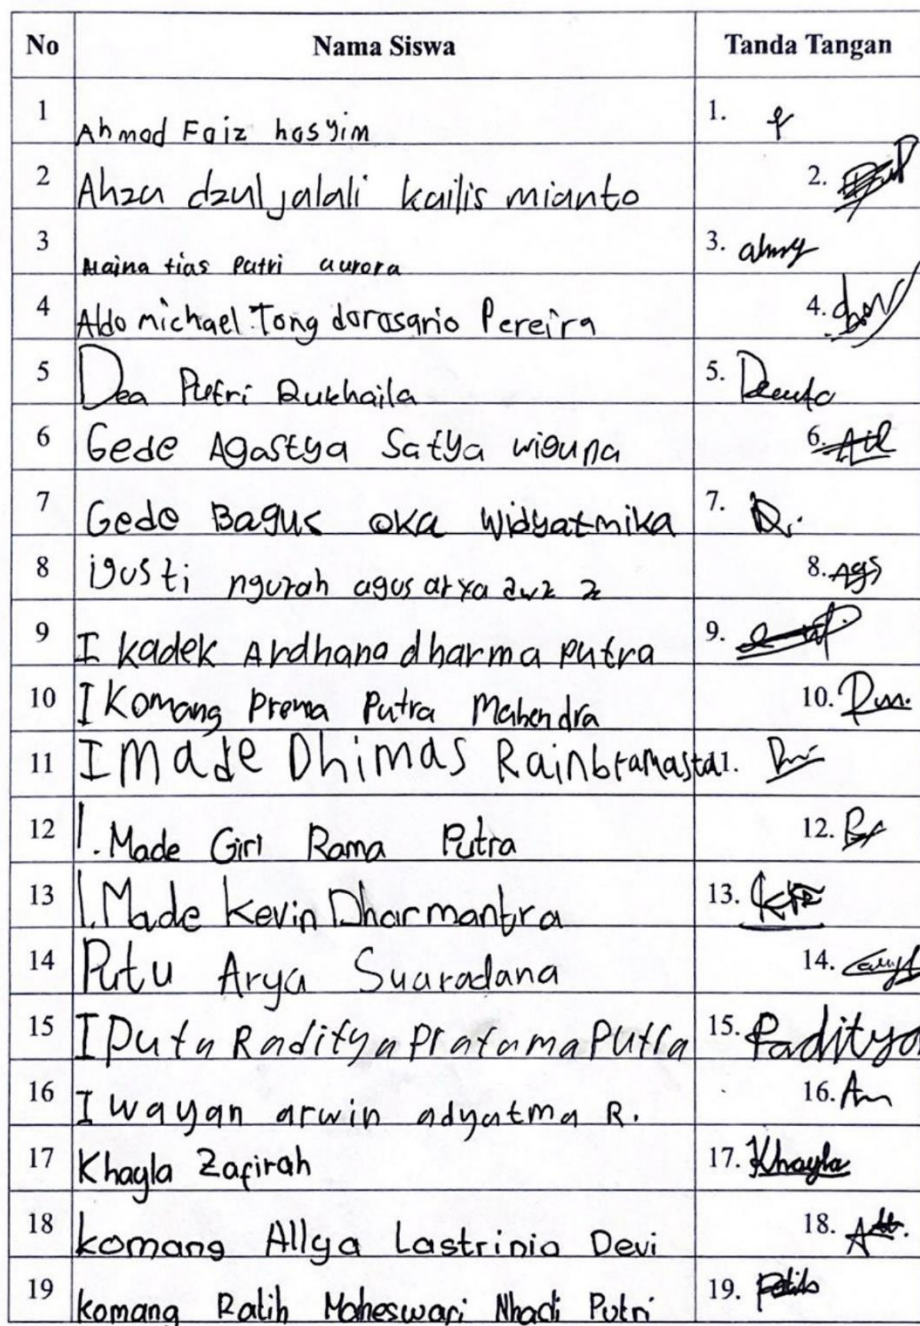 No Nama Siswa Tanda Tangan
1 Ahmad Faiz hasyim 1.
2 Ahza dzul jalali kailis mianto 2.
3 Alaina tias putri aurora 3.
4 Aldo michael Tong dorosario Pereira 4.
5 Dea Putri Rukhaila 5.
6 Gede Agastya Satya wiguna 6.
7 Gede Bagus oka Widyatmika 7.
8 igusti ngurah agus arya 8. Ags
9 I kadek Ardhana dharma putra 9.
10 I Komang Prema Putra Mahendra 10.
11 I Made Dhimas Rainbramasta 11.
12 I. Made Giri Rama Putra 12.
13 I. Made Kevin Dharmantra 13.
14 Putu Arya Suaradana 14.
15 I Putu Raditya Pratama Putra 15. Raditya
16 I wayan arwin adyatma R. 16.
17 Khayla Zafirah 17. Khayla
18 komang Allya Lastrinia Devi 18.
19 komang Ratih Maheswari Nhadi Putri 19. Ratih